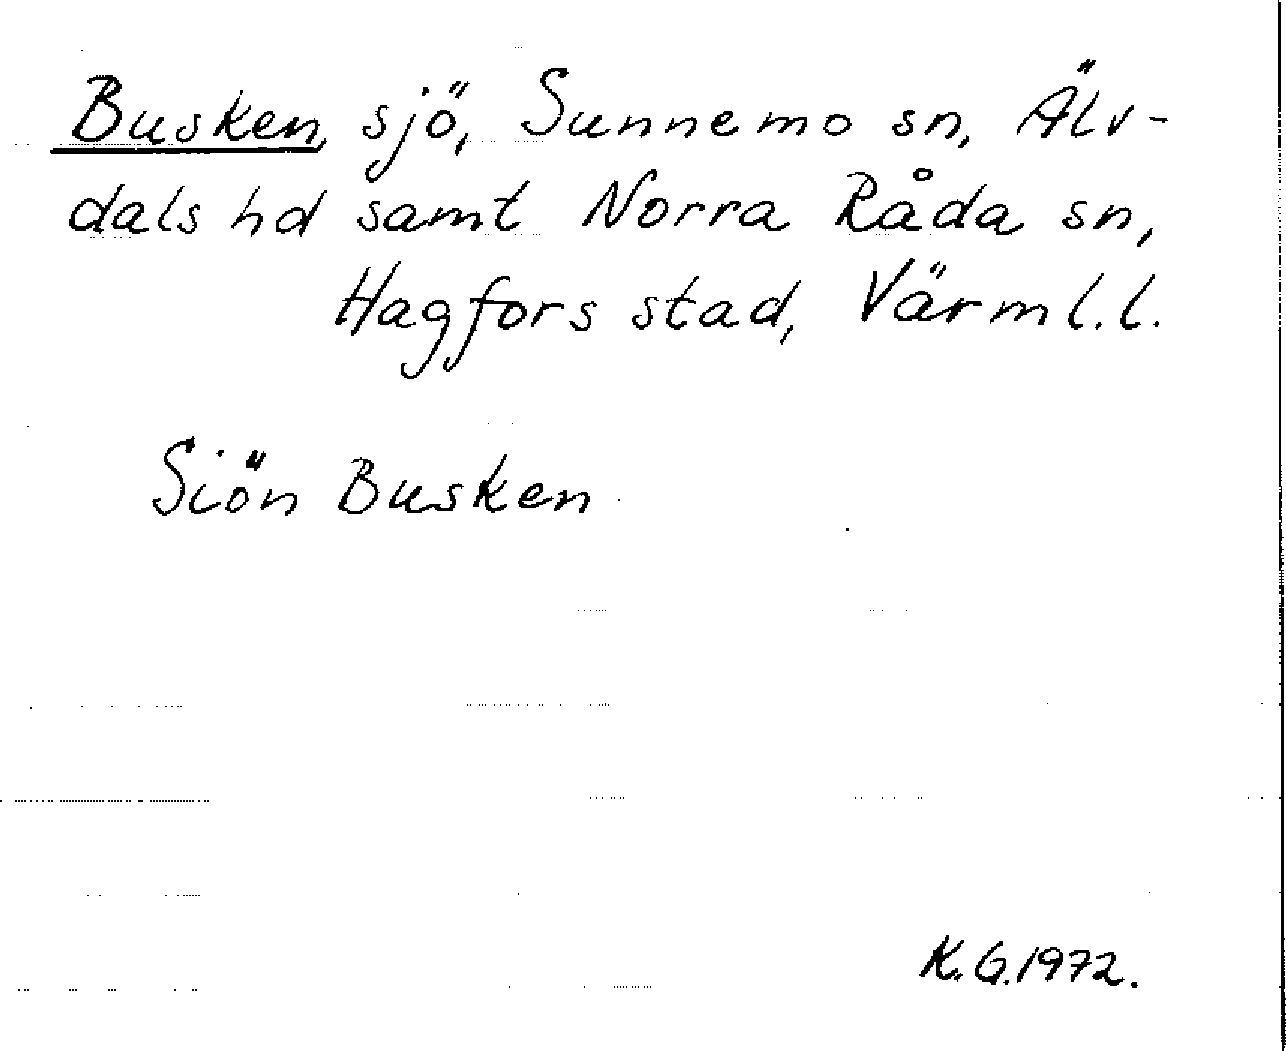 Busken, sjö, Sunnemo sn, Älv-
dals hd samt Norra Råda sn,
Hagfors stad, Värml. l.
Siön Busken
K. G. 1972.